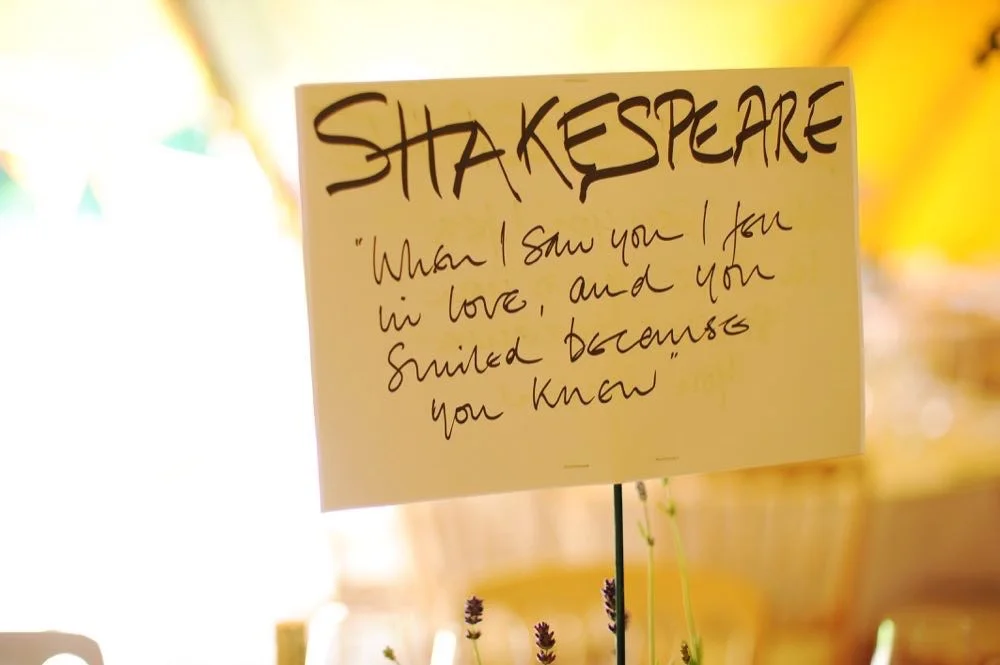 SHAKESPEARE
"When I saw you I fell
in love, and you
smiled because
you knew"